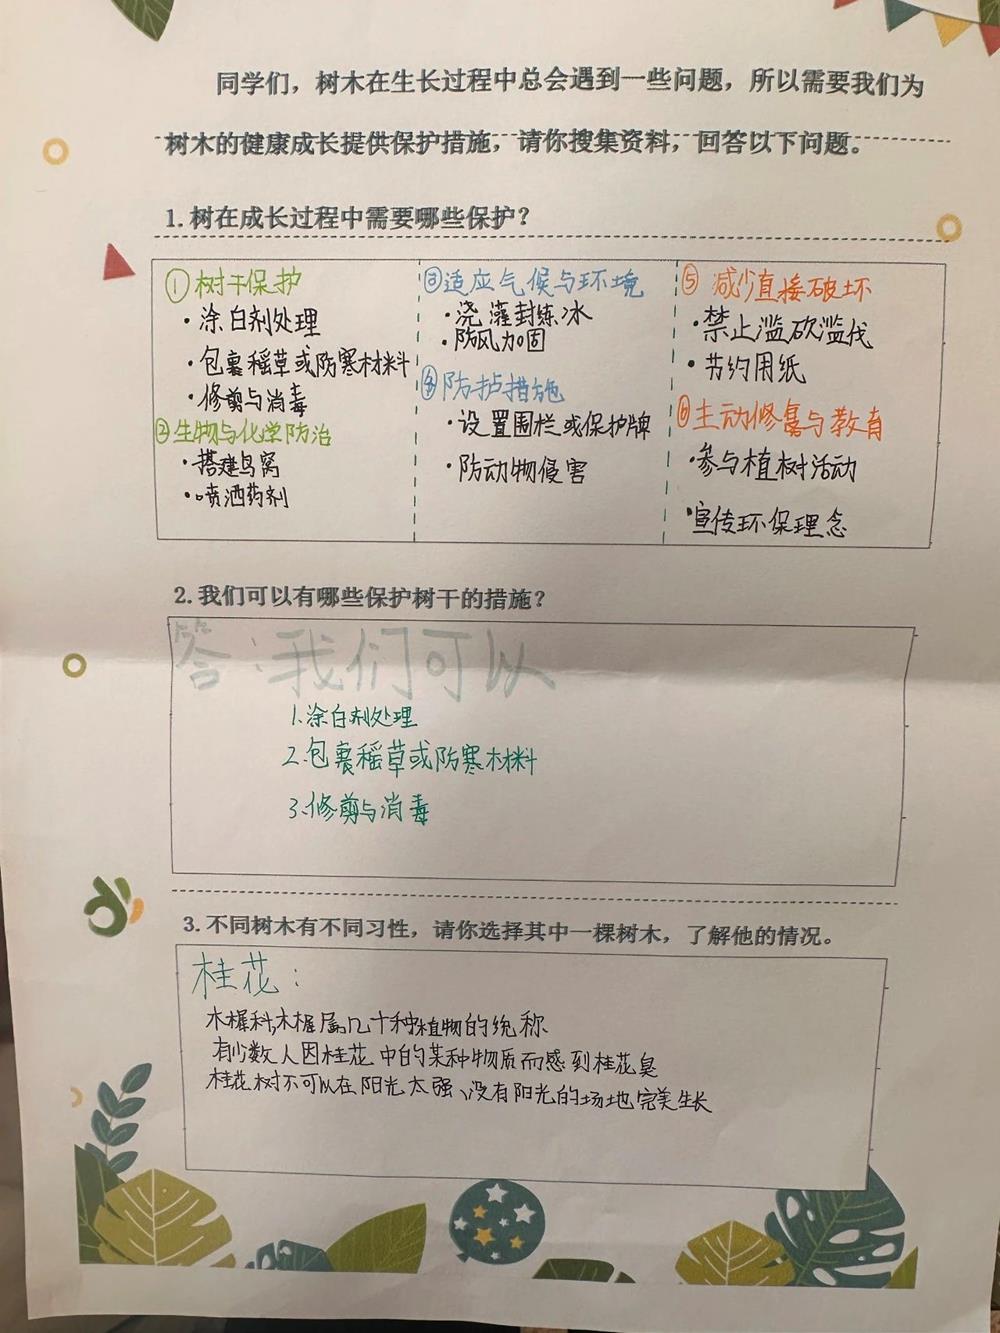 同学们，树木在生长过程中总会遇到一些问题，所以需要我们为
树木的健康成长提供保护措施，请你搜集资料，回答以下问题。
1. 树在成长过程中需要哪些保护？
①树干保护
·涂白剂处理
·包裹稻草或防寒材料
·修剪与消毒
②生物与化学防治
·搭建鸟窝
·喷洒药剂
③适应气候与环境
·浇灌封练冰
·防风加固
④防护措施
·设置围栏或保护牌
·防动物侵害
⑤减少直接破坏
·禁止滥砍滥伐
·节约用纸
⑥主动修复与教育
·参与植树活动
·宣传环保理念
2. 我们可以有哪些保护树干的措施？
答：我们可以
1.涂白剂处理
2.包裹稻草或防寒材料
3.修剪与消毒
3. 不同树木有不同习性，请你选择其中一棵树木，了解他的情况。
桂花：
木樨科,木樨属几十种植物的统称
有少数人因桂花中的某种物质而感到桂花臭
桂花树不可以在阳光太强、没有阳光的场地完美生长